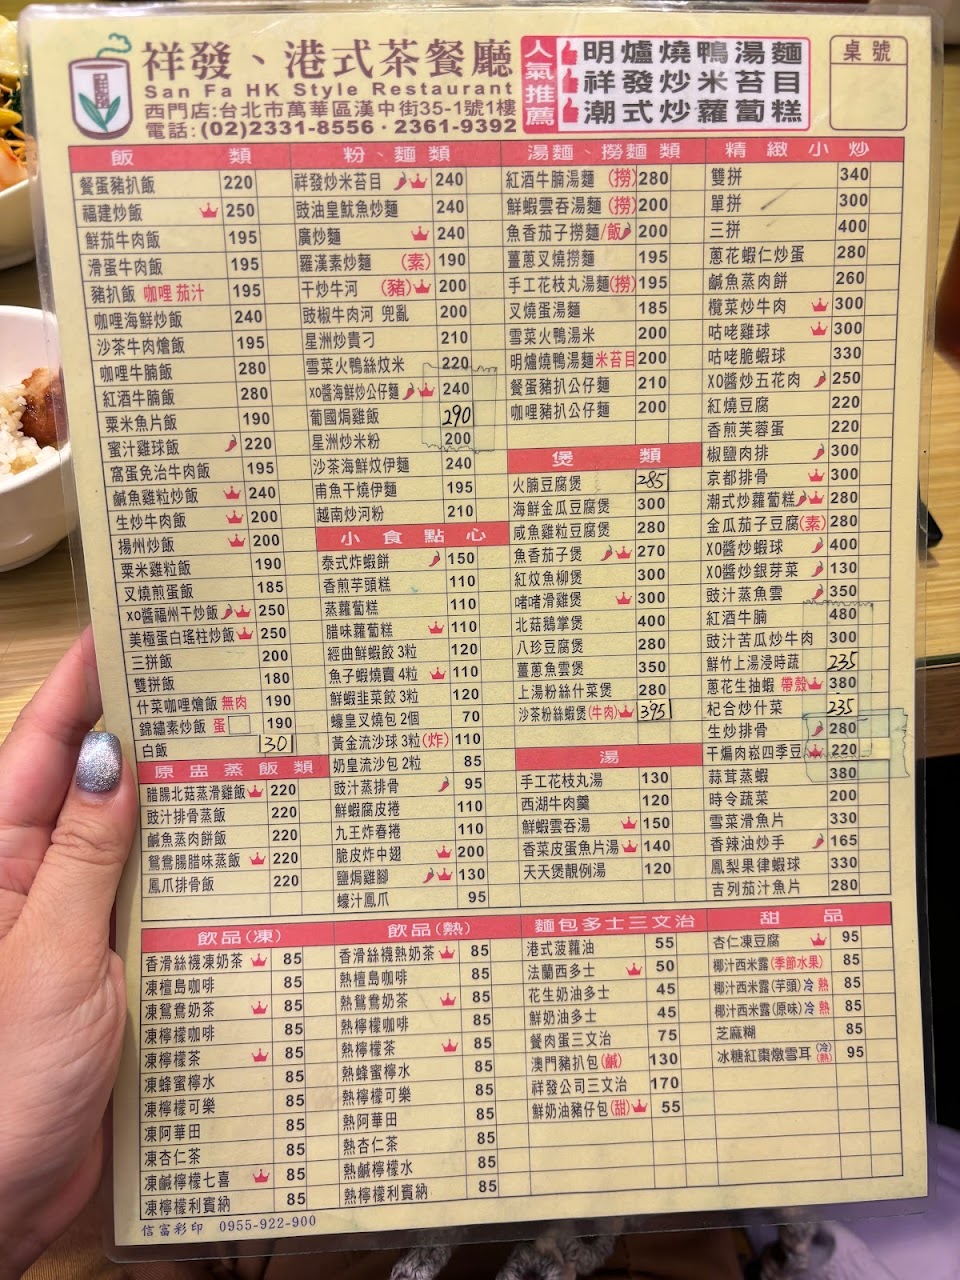 祥發、港式茶餐廳
San Fa HK Style Restaurant
西門店:台北市萬華區漢中街35-1號1樓
電話:(02)2331-8556・2361-9392
人氣推薦
明爐燒鴨湯麵
祥發炒米苔目
潮式炒蘿蔔糕
桌號
飯類
餐蛋豬扒飯 220
福建炒飯 250
鮮茄牛肉飯 195
滑蛋牛肉飯 195
豬扒飯 咖哩 茄汁 195
咖哩海鮮炒飯 240
沙茶牛肉燴飯 195
咖哩牛腩飯 280
紅酒牛腩飯 280
粟米魚片飯 190
蜜汁雞球飯 220
窩蛋免治牛肉飯 195
鹹魚雞粒炒飯 240
生炒牛肉飯 200
揚州炒飯 200
粟米雞粒飯 190
叉燒煎蛋飯 185
XO醬福州干炒飯 250
美極蛋白瑤柱炒飯 250
三拼飯 200
雙拼飯 180
什菜咖哩燴飯 無肉 190
錦繡素炒飯 蛋 190
白飯 30
原盅蒸飯類
腊腸北菇蒸滑雞飯 220
豉汁排骨蒸飯 220
鹹魚蒸肉餅飯 220
鴛鴦腸腊味蒸飯 220
鳳爪排骨飯 220
粉、麵類
祥發炒米苔目 240
豉油皇魷魚炒麵 240
廣炒麵 240
羅漢素炒麵 (素) 190
干炒牛河 (豬) 200
豉椒牛肉河 兜亂 200
星洲炒貴刁 210
雪菜火鴨絲炆米 220
XO醬海鮮炒公仔麵 240
葡國焗雞飯 290
星洲炒米粉 200
沙茶海鮮炆伊麵 240
甫魚干燒伊麵 195
越南炒河粉 210
小食點心
泰式炸蝦餅 150
香煎芋頭糕 110
蒸蘿蔔糕 110
腊味蘿蔔糕 110
經曲鮮蝦餃 3粒 120
魚子蝦燒賣 4粒 110
鮮蝦韭菜餃 3粒 120
蠔皇叉燒包 2個 70
黃金流沙球 3粒(炸) 110
奶皇流沙包 2粒 85
豉汁蒸排骨 95
鮮蝦腐皮捲 110
九王炸春捲 110
脆皮炸中翅 200
鹽焗雞腳 130
蠔汁鳳爪 95
湯麵、撈麵類
紅酒牛腩湯麵 (撈) 280
鮮蝦雲吞湯麵 (撈) 200
魚香茄子撈麵/飯 200
薑蔥叉燒撈麵 195
手工花枝丸湯麵(撈) 195
叉燒蛋湯麵 185
雪菜火鴨湯米 200
明爐燒鴨湯麵米苔目 200
餐蛋豬扒公仔麵 210
咖哩豬扒公仔麵 200
煲類
火腩豆腐煲 285
海鮮金瓜豆腐煲 300
咸魚雞粒豆腐煲 280
魚香茄子煲 270
紅炆魚柳煲 300
啫啫滑雞煲 300
北菇鵝掌煲 400
八珍豆腐煲 280
薑蔥魚雲煲 350
上湯粉絲什菜煲 280
沙茶粉絲蝦煲(牛肉) 395
湯
手工花枝丸湯 130
西湖牛肉羹 120
鮮蝦雲吞湯 150
香菜皮蛋魚片湯 140
天天煲靚例湯 120
精緻小炒
雙拼 340
單拼 300
三拼 400
蔥花蝦仁炒蛋 280
鹹魚蒸肉餅 260
欖菜炒牛肉 300
咕咾雞球 300
咕咾脆蝦球 330
XO醬炒五花肉 250
紅燒豆腐 220
香煎芙蓉蛋 220
椒鹽肉排 300
京都排骨 300
潮式炒蘿蔔糕 280
金瓜茄子豆腐(素) 280
XO醬炒蝦球 400
XO醬炒銀芽菜 130
豉汁蒸魚雲 350
紅酒牛腩 480
豉汁苦瓜炒牛肉 300
鮮竹上湯浸時蔬 235
蔥花生抽蝦 帶殼 380
杞合炒什菜 235
生炒排骨 280
干煸肉崧四季豆 220
蒜茸蒸蝦 380
時令蔬菜 200
雪菜滑魚片 330
香辣油炒手 165
鳳梨果律蝦球 330
吉列茄汁魚片 280
飲品(凍)
香滑絲襪凍奶茶 85
凍檀島咖啡 85
凍鴛鴦奶茶 85
凍檸檬咖啡 85
凍檸檬茶 85
凍蜂蜜檸水 85
凍檸檬可樂 85
凍阿華田 85
凍杏仁茶 85
凍鹹檸檬七喜 85
凍檸檬利賓納 85
飲品(熱)
香滑絲襪熱奶茶 85
熱檀島咖啡 85
熱鴛鴦奶茶 85
熱檸檬咖啡 85
熱檸檬茶 85
熱蜂蜜檸水 85
熱檸檬可樂 85
熱阿華田 85
熱杏仁茶 85
熱鹹檸檬水 85
熱檸檬利賓納 85
麵包多士三文治
港式菠蘿油 55
法蘭西多士 50
花生奶油多士 45
鮮奶油多士 45
餐肉蛋三文治 75
澳門豬扒包(鹹) 130
祥發公司三文治 170
鮮奶油豬仔包(甜) 55
甜品
杏仁凍豆腐 95
椰汁西米露(季節水果) 85
椰汁西米露(芋頭)冷 熱 85
椰汁西米露(原味)冷 熱 85
芝麻糊 85
冰糖紅棗燉雪耳 (冷)(熱) 95
信富彩印 0955-922-900